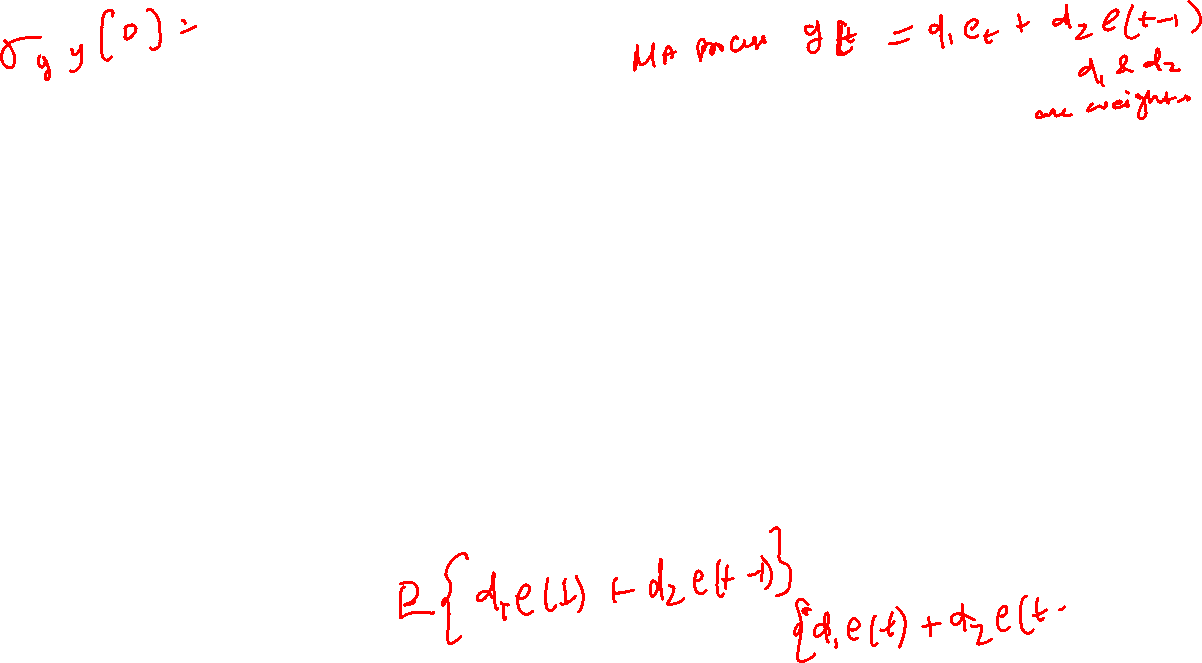 σ y y (0) =
MA process y[t = d₁ e t + d₂ e(t-1)
d₁ & d₂
are weights
E{ d₁ e(t) + d₂ e(t-1)}
{d₁ e(t) + d₂ e(t-